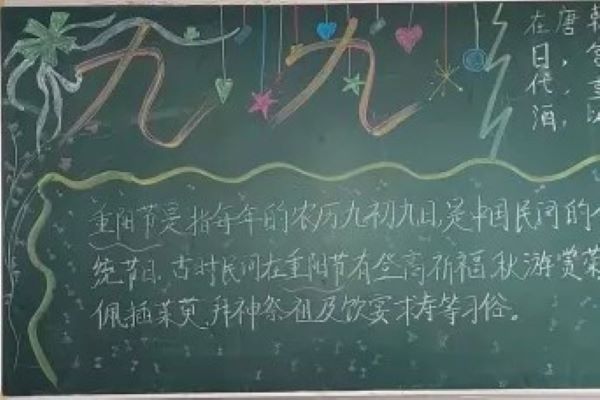 九九
在唐朝
日，
代，
酒，
重阳节是指每年的农历九初九日，是中国民间的
统节日，古时民间在重阳节有登高祈福秋游赏
佩插茱萸，拜神祭祖及饮宴求寿等习俗。